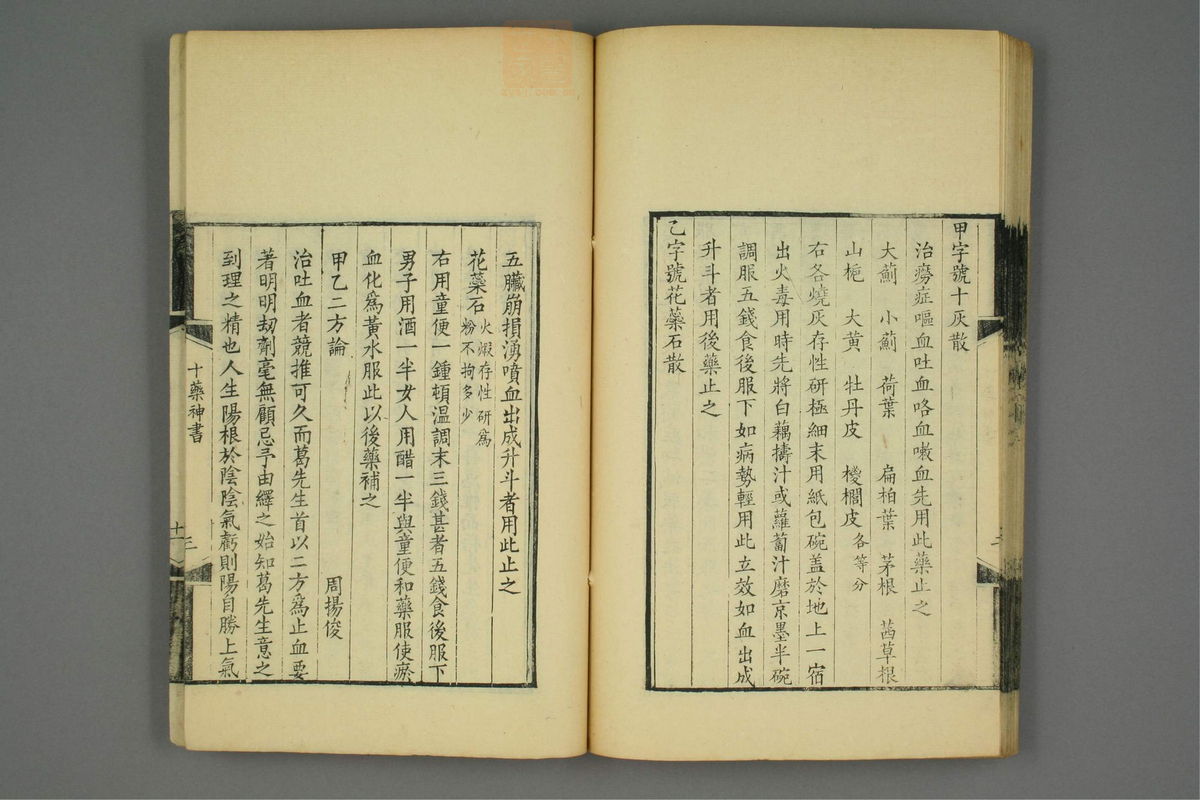 甲字號十灰散
治癆症嘔血吐血咯血嗽血先用此藥止之
大薊 小薊 荷葉 扁柏葉 茅根 茜草根
山梔 大黃 牡丹皮 椶櫚皮各等分
右各燒灰存性研極細末用紙包碗盖於地上一宿
出火毒用時先將白藕擣汁或蘿蔔汁磨京墨半碗
調服五錢食後服下如病勢輕用此立效如血出成
升斗者用後藥止之
乙字號花蘂石散
五臟崩損湧噴血出成升斗者用此止之
花蘂石火煅存性研爲粉不拘多少
右用童便一鍾頓溫調末三錢甚者五錢食後服下
男子用酒一半女人用醋一半與童便和藥服使瘀
血化爲黃水服此以後藥補之
甲乙二方論 周揚俊
治吐血者競推可久而葛先生首以二方爲止血要
著明明刧劑毫無顧忌予由繹之始知葛先生意之
到理之精也人生陽根於陰陰氣虧則陽自勝上氣
十藥神書
十一
三